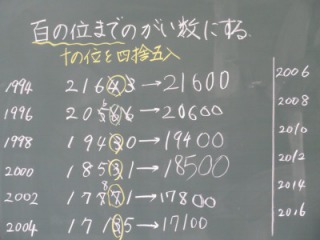 百の位までのがい数にする。
十の位を四捨五入
1994 21643→21600 2006
1996 →20600 2008
1998 19430→19400 2010
2000 18531→18500 2012
2002 →17800 2014
2004 →17100 2016